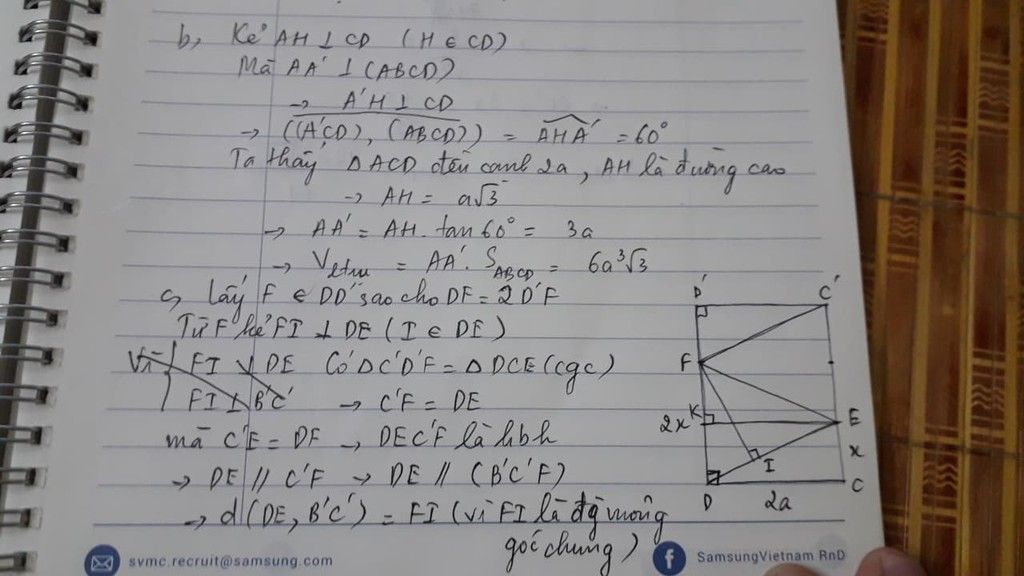 b, Kẻ AH ⊥ CD (H ∈ CD)
Mà AA' ⊥ (ABCD)
→ A'H ⊥ CD
→ ((A'CD), (ABCD)) = AHA' = 60°
Ta thấy ΔACD đều cạnh 2a, AH là đường cao
→ AH = a√3
→ AA' = AH. tan60° = 3a
→ Vltru = AA'. S_ABCD = 6a³√3
c, Lấy F ∈ DD' sao cho DF = 2D'F
Từ F kẻ FI ⊥ DE (I ∈ DE)
Vì { FI ⊥ DE Có ΔC'D'F = ΔDCE (cgc)
FI ⊥ B'C' → C'F = DE
mà C'E = DF → DEC'F là hbh
→ DE // C'F → DE // (B'C'F)
→ d(DE, B'C') = FI (vì FI là đg vuông
góc chung)
D' C'
F
K E
2x x
I
D 2a C
svmc.recruit@samsung.com
f SamsungVietnam RnD